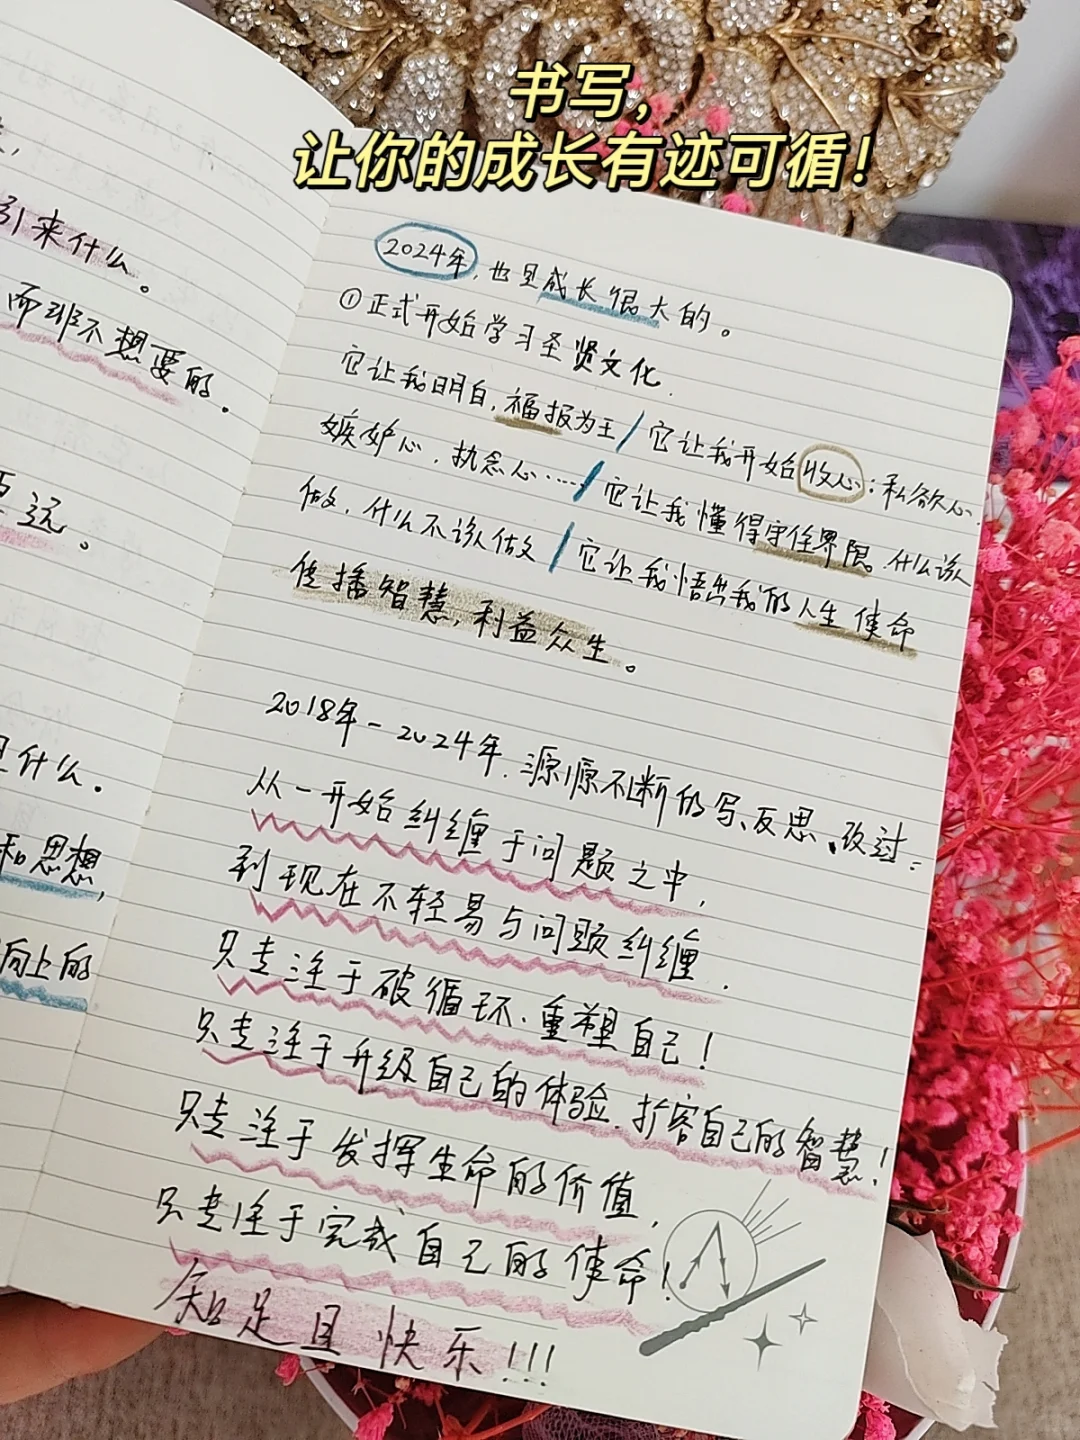 书写，
让你的成长有迹可循！
引来什么。
而非不想要的。
远。
是什么。
和思想，
向上的
2024年，也是成长很大的。
①正式开始学习圣贤文化.
它让我明白，福报为王/它让我开始收心：私欲心.
嫉妒心．执念心……/它让我懂得守住界限．什么该
做．什么不该做/它让我悟出我的人生使命
传播智慧，利益众生。
2018年-2024年．源源不断的写、反思、改过：
从一开始纠缠于问题之中，
到现在不轻易与问题纠缠．
只专注于破循环．重塑自己！
只专注于升级自己的体验．扩容自己的智慧！
只专注于发挥生命的价值，
只专注于完成自己的使命！
知足且快乐！！！